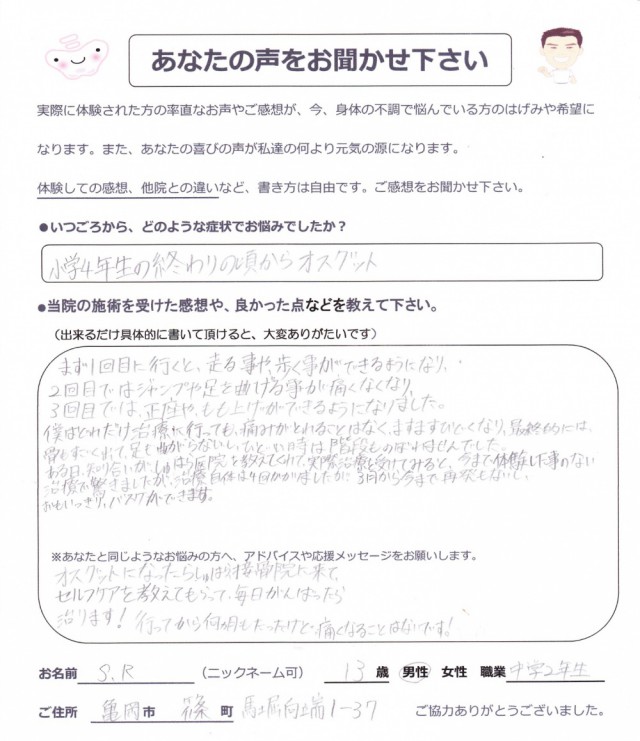 あなたの声をお聞かせ下さい
実際に体験された方の率直なお声やご感想が、今、身体の不調で悩んでいる方のはげみや希望に
なります。また、あなたの喜びの声が私達の何より元気の源になります。
体験しての感想、他院との違いなど、書き方は自由です。ご感想をお聞かせ下さい。
●いつごろから、どのような症状でお悩みでしたか？
小学4年生の終わりの頃からオスグット
●当院の施術を受けた感想や、良かった点などを教えて下さい。
（出来るだけ具体的に書いて頂けると、大変ありがたいです）
まず1回目に行くと、走る事や歩く事ができるようになり、
2回目ではジャンプや足を曲げる事が痛くなくなり、
3回目では、正座や、もも上げができるようになりました。
僕はどれだけ治療に行っても、痛みがとれることはなく、ますますひどくなり、最終的には、
骨もでてくれて、足も曲がらないし、ひどい時は階段ものぼれませんでした。
ある日、知り合いが、しゅはら医院を教えてくれて、実際治療を受けてみると、今まで体験した事のない
治療で驚きましたが、治療自体は4回かかりましたが、3月から今まで再発もないし、
おもいっきり、バスケができます。
※あなたと同じようなお悩みの方へ、アドバイスや応援メッセージをお願いします。
オスグットになったらしゅはら接骨院に来て、
セルフケアを教えてもらって、毎日がんばったら
治ります！行ってから何か月もたったけど、痛くなることはないです！
お名前 S.R （ニックネーム可） 13 歳 男性 女性 職業 中学2年生
ご住所 亀岡 市 篠 町 馬堀向端1-37 ご協力ありがとうございました。